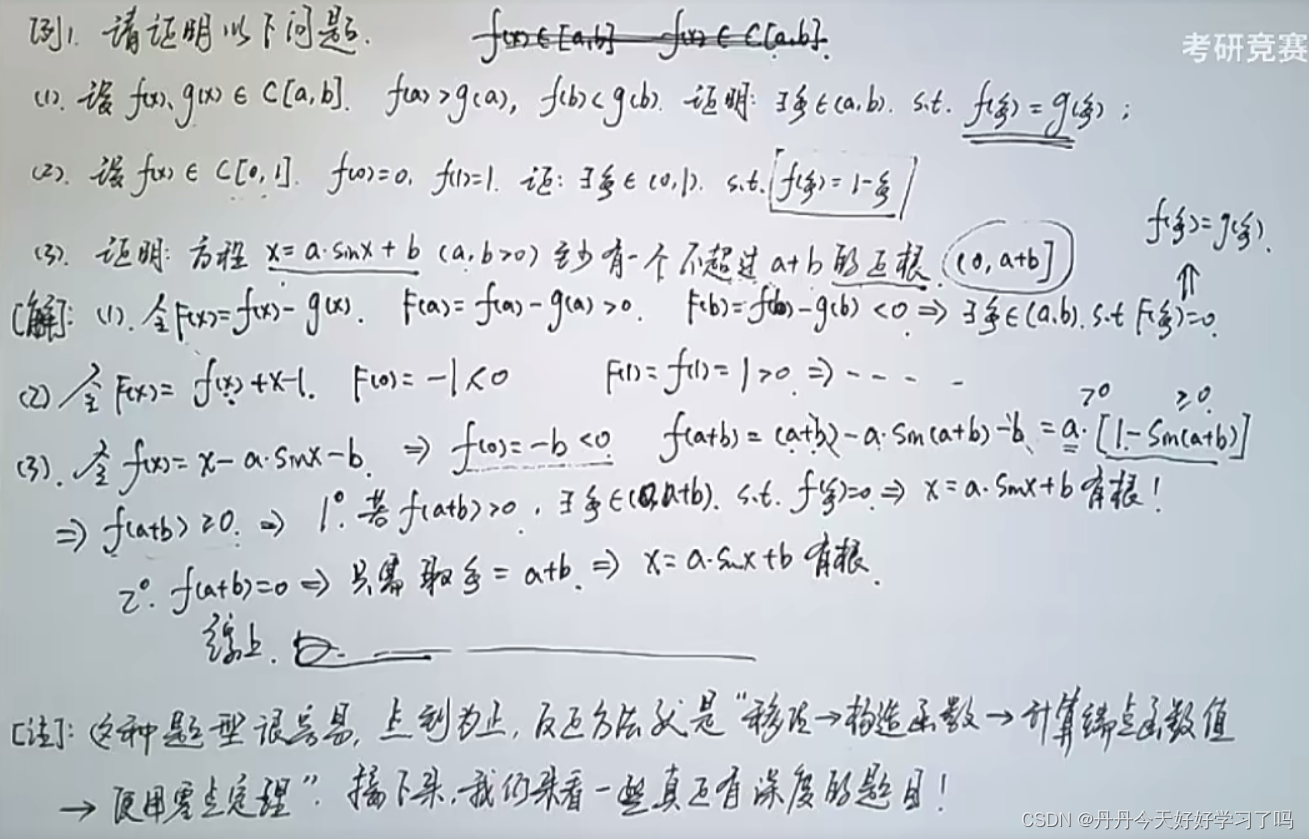 例1. 请证明以下问题.
f(x)∈[a,b] f(x)∈C[a,b].
考研竞赛
(1). 设 f(x)、g(x) ∈ C[a,b]. f(a)>g(a), f(b)<g(b). 证明: ∃ξ∈(a,b). s.t. f(ξ)=g(ξ);
(2). 设 f(x) ∈ C[0,1]. f(0)=0, f(1)=1. 证: ∃ξ∈(0,1). s.t. f(ξ)=1-ξ
f(ξ)=g(ξ).
(3). 证明: 方程 x=a·sinx+b (a,b>0) 至少有一个不超过 a+b 的正根. (0,a+b]
⇑
[解]: (1). 令F(x)=f(x)-g(x). F(a)=f(a)-g(a)>0. F(b)=f(b)-g(b)<0 ⇒ ∃ξ∈(a,b). s.t F(ξ)=0.
(2) 令 F(x)= f(x)+x-1. F(0)=-1<0 F(1)=f(1)=1>0 ⇒ - - - -
>0 ≥0.
(3). 令 f(x)=x-a·sinx-b. ⇒ f(0)=-b<0 f(a+b)=(a+b)-a·sin(a+b)-b =a·[1-sin(a+b)]
⇒ f(a+b)≥0. ⇒ 1°. 若 f(a+b)>0, ∃ξ∈(0,a+b). s.t. f(ξ)=0 ⇒ x=a·sinx+b 有根!
2°. f(a+b)=0 ⇒ 只需取ξ=a+b. ⇒ x=a·sinx+b 有根.
综上.
[注]: 这种题型很容易, 点到为止, 反正方法就是“移项→构造函数→计算端点函数值
→ 使用零点定理”. 接下来, 我们来看一些真正有深度的题目!
CSDN @丹丹今天好好学习了吗